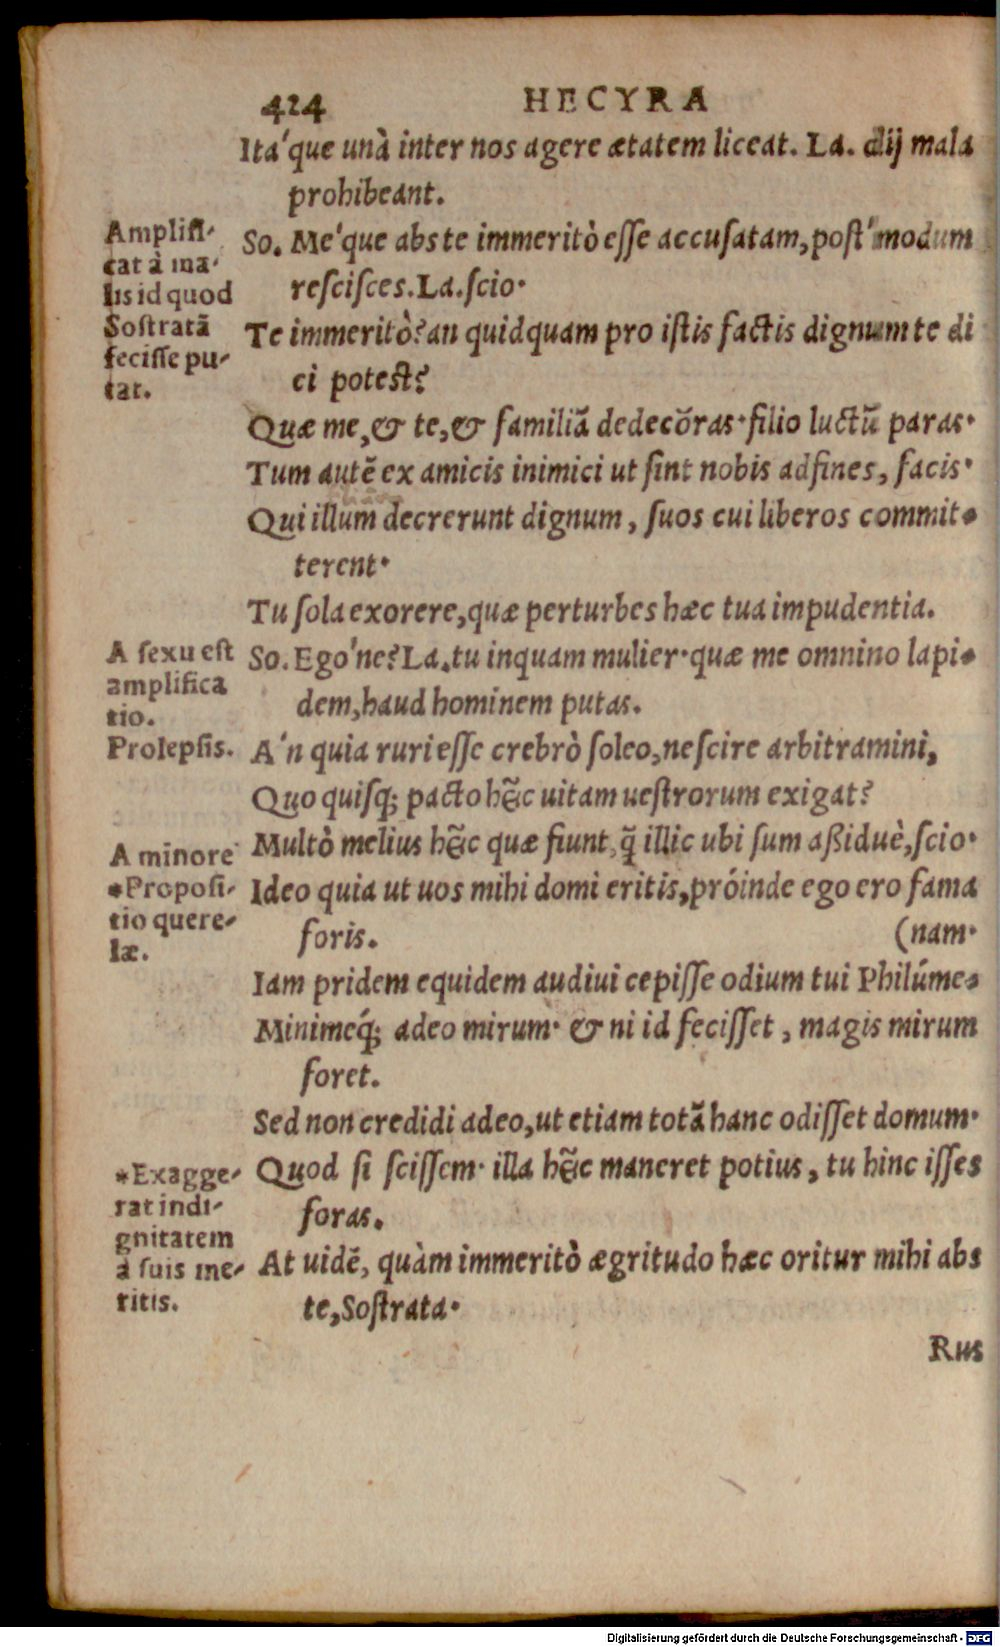 424 HECYRA
Ita'que unà inter nos agere ætatem liceat. La. dij mala
prohibeant.
So. Me'que abs te immeritò eſſe accuſatam, poſt'modum
reſciſces. La. ſcio.
Te immeritò? an quidquam pro iſtis factis dignum te di
ci poteſt?
Quæ me, & te, & familiã dedecõras. filio luctũ paras.
Tum autẽ ex amicis inimici ut ſint nobis adfines, facis.
Qui illum decrerunt dignum, ſuos cui liberos commit-
terent.
Tu ſola exorere, quæ perturbes hæc tua impudentia.
So. Ego'ne? La. tu inquam mulier. quæ me omnino lapi-
dem, haud hominem putas.
A'n quia ruri eſſe crebrò ſoleo, neſcire arbitramini,
Quo quiſq; pacto hîc uitam ueſtrorum exigat?
Multò melius hîc quæ fiunt, q̃ illic ubi ſum aßiduè, ſcio.
Ideo quia ut uos mihi domi eritis, próinde ego ero fama
foris. (nam.
Iam pridem equidem audiui cepiſſe odium tui Philúme-
Minimeq́; adeo mirum. & ni id feciſſet, magis mirum
foret.
Sed non credidi adeo, ut etiam totã hanc odiſſet domum.
Quod ſi ſciſſem. illa hîc maneret potius, tu hinc iſſes
foras.
At uidẽ, quàm immeritò ægritudo hæc oritur mihi abs
te, Soſtrata.
Rus
Amplifi-
cat à ma-
lis id quod
Soſtratã
feciſſe pu-
tat.
A ſexu eſt
amplifica
tio.
Prolepſis.
A minore
*Propoſi-
tio quere-
læ.
*Exagge-
rat indi-
gnitatem
à ſuis me-
ritis.
Digitalisierung gefördert durch die Deutsche Forschungsgemeinschaft - DFG